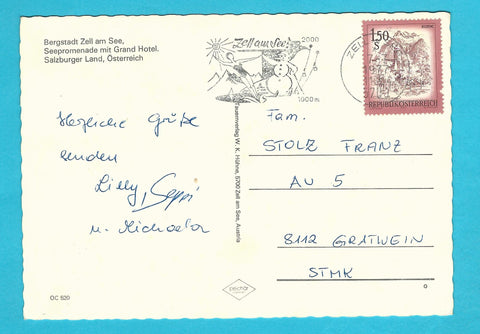 Bergstadt Zell am See,
Seepromenade mit Grand Hotel.
Salzburger Land, Österreich
Zell am See
2000
1900 m
ZELL
1.50
S
REPUBLIK ÖSTERREICH
Herzliche Grüße
senden
Lilly, Seppi
u. Michaela
Fam.
STOLZ FRANZ
AU 5
8112 GRATWEIN
STMK
W. K. Hühne, 5700 Zell am See, Austria
DC 520